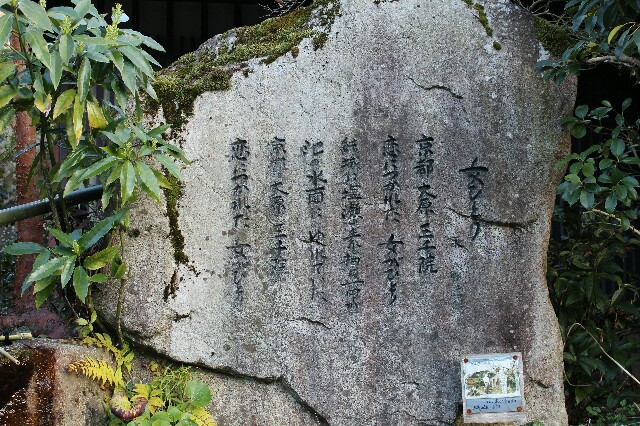 女ひとり
京都大原三千院
恋に疲れた 女がひとり
結城に塩瀬の素描の帯が
池の水面に ゆれていた
京都大原三千院
恋に疲れた 女がひとり